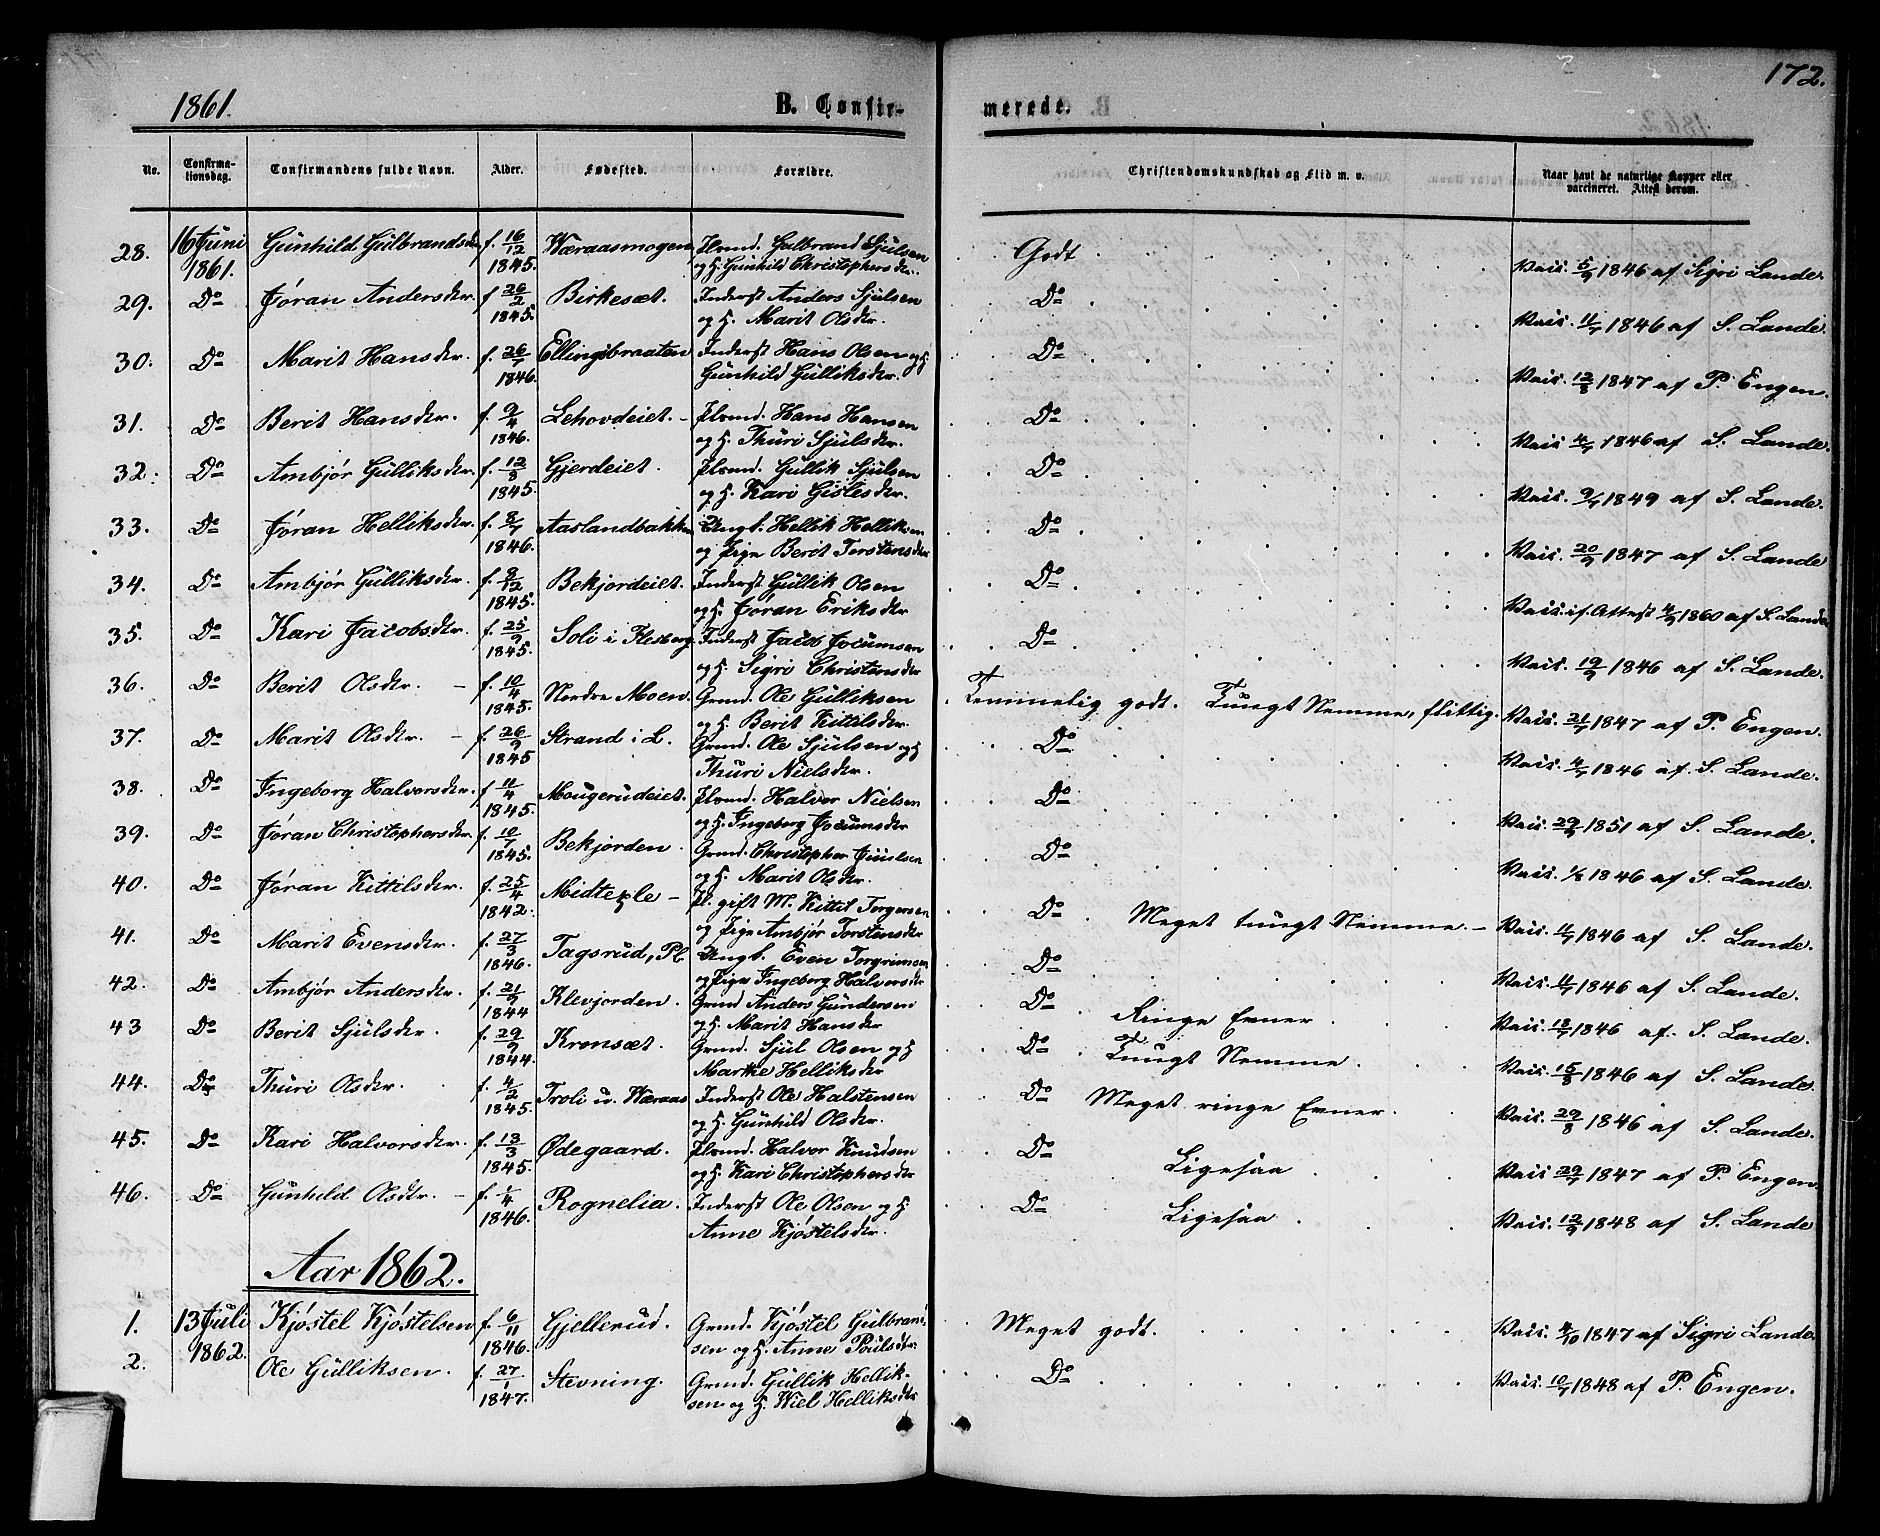 172.
1861.
B. Confir-
merede.
No. Confirma-tionsdag. Confirmandens fulde Navn. Alder. Fødested. Forældre. Christendomskundskab og Flid m. v. Naar havt de naturlige Kopper eller vaccineret. Attest derom.
28. 16 Juni 1861. Gunhild Gulbrandsdr. f. 16/12 1845. Væraasmogen Plvmd. Gulbrand Sjulsen og H. Gunhild Christophersdr. Godt Vais. 5/9 1846 af Sigri Lande.
29. Do Jøran Andersdr. f 26/2 1845. Birkesæt. Inderst Anders Sjulsen og H. Marit Olsdr. Do Vais. 11/7 1846 af S. Lande.
30. Do Marit Hansdr. f. 26/7 1846. Ellingsbraaten Inderst Hans Olsen og H. Gunhild Gulliksdr. Do Vais. 12/8 1847 af P. Engen.
31. Do Berit Hansdr. f. 9/4 1846. Lehovdeiet. Plvmd. Hans Hansen og H. Thuri Sjulsdr. Do Vais 4/7 1846 af S. Lande.
32. Do Ambjør Gulliksdr. f. 12/8 1845. Gjerdeiet. Plvmd. Gullik Sjulsen og H. Kari Gislesdr. Do Vais. 9/7 1849 af S. Lande.
33. Do Jøran Helliksdr. f. 8/7 1846. Aaslandbakken Ungk. Hellik Helliksen og Pige Berit Torstensdr Do Vais. 20/9 1847 af S. Lande
34. Do Ambjør Gulliksdr. f. 8/12 1845. Bekjordeiet. Inderst Gullik Olsen og H. Jøran Eriksdr Do Vais. if. Attest 4/9 1860 af S. Lande
35. Do Kari Jacobsdr. f. 25/9 1845. Soli i Flesberg. Inderst Jacob Jocumsen og H. Sigri Christensdr Do Vais. 19/9 1846 af S. Lande.
36. Do Berit Olsdr. f. 10/4 1845. Nordre Moen. Grmd. Ole Gulliksen og H. Berit Kittilsdr. Temmelig godt. Tungt Nemme, flittig. Vais. 21/7 1847 af P. Engen.
37. Do Marit Olsdr. f. 26/9 1845 Strand i L. Grmd. Ole Sjulsen og H Thuri Nielsdr. Do Vais. 4/7 1846 af. S. Lande.
38. Do Ingeborg Halvorsdr. f 11/4 1845. Mougerudeiet. Plvmd. Halvor Nielsen og H. Ingeborg Jocumsdr Do Vais. 29/9 1851 af S. Lande.
39. Do Jøran Christophersdr f. 10/7 1845. Bekjorden. Grmd. Christopher Juulsen og H. Marit Olsdr. Do Vais. 1/8 1846 af S. Lande.
40. Do Jøran Kittilsdr. f. 25/4 1842. Midteple Pl. gift M. Kittil Torgersen og Pige Ambjør Torstensdr Do Meget tungt Nemme. Vais. 11/7 1846 af S. Lande.
41. Do Marit Evensdr. f. 27/3 1846. Tagsrud, Pl. Ungk. Even Torgrimsen og Pige Ingeborg Halvorsdr Do Vais. 11/7 1846 af S. Lande.
42. Do Ambjør Andersdr. f. 21/9 1844 Klevjorden. Grmd Anders Gundersen og H. Marit Hansdr Do Ringe Evner Vais. 18/7 1846 af. S. Lande.
43 Do Berit Sjulsdr. f. 29/9 1844. Kronsæt. Grmd. Sjul Olsen og H Marthe Helliksdr Do Tungt Nemme. Vais. 15/8 1846 af S. Lande.
44. Do Thuri Olsdr. f. 4/2 1845. Troli u. Væraas Inderst Ole Halstensen og H. Gunhild Olsdr. Do Meget ringe Evner. Vais. 29/8 1846 af S. Lande.
45. Do Kari Halvorsdr. f. 13/3 1845. Ødegaard. Plvmd. Halvor Knudsen og H. Kari Christophersdr Do Ligesaa Vais. 29/7 1847 af P. Engen.
46. Do Gunhild Olsdtr. f. 1/4 1846. Rognelia. Inderst Ole Olsen og H Anne Kjøstelsdr. Do Ligesaa Vais. 12/9 1848 af S. Lande
Aar 1862.
1. 13 Juli 1862. Kjøstel Kjøstelsen f. 6/11 1846. Gjellerud. Grmd. Kjøstel Gulbrand-sen og H. Anne Poulsdtr Meget godt. Vais. 4/10 1847 af Sigri Lande.
2. Ole Gulliksen. f. 27/1 1847. Stevning. Grmd. Gullik Hellik-sen og H. Kiel Helliksdtr Do Vais. 10/7 1848 af P. Engen.